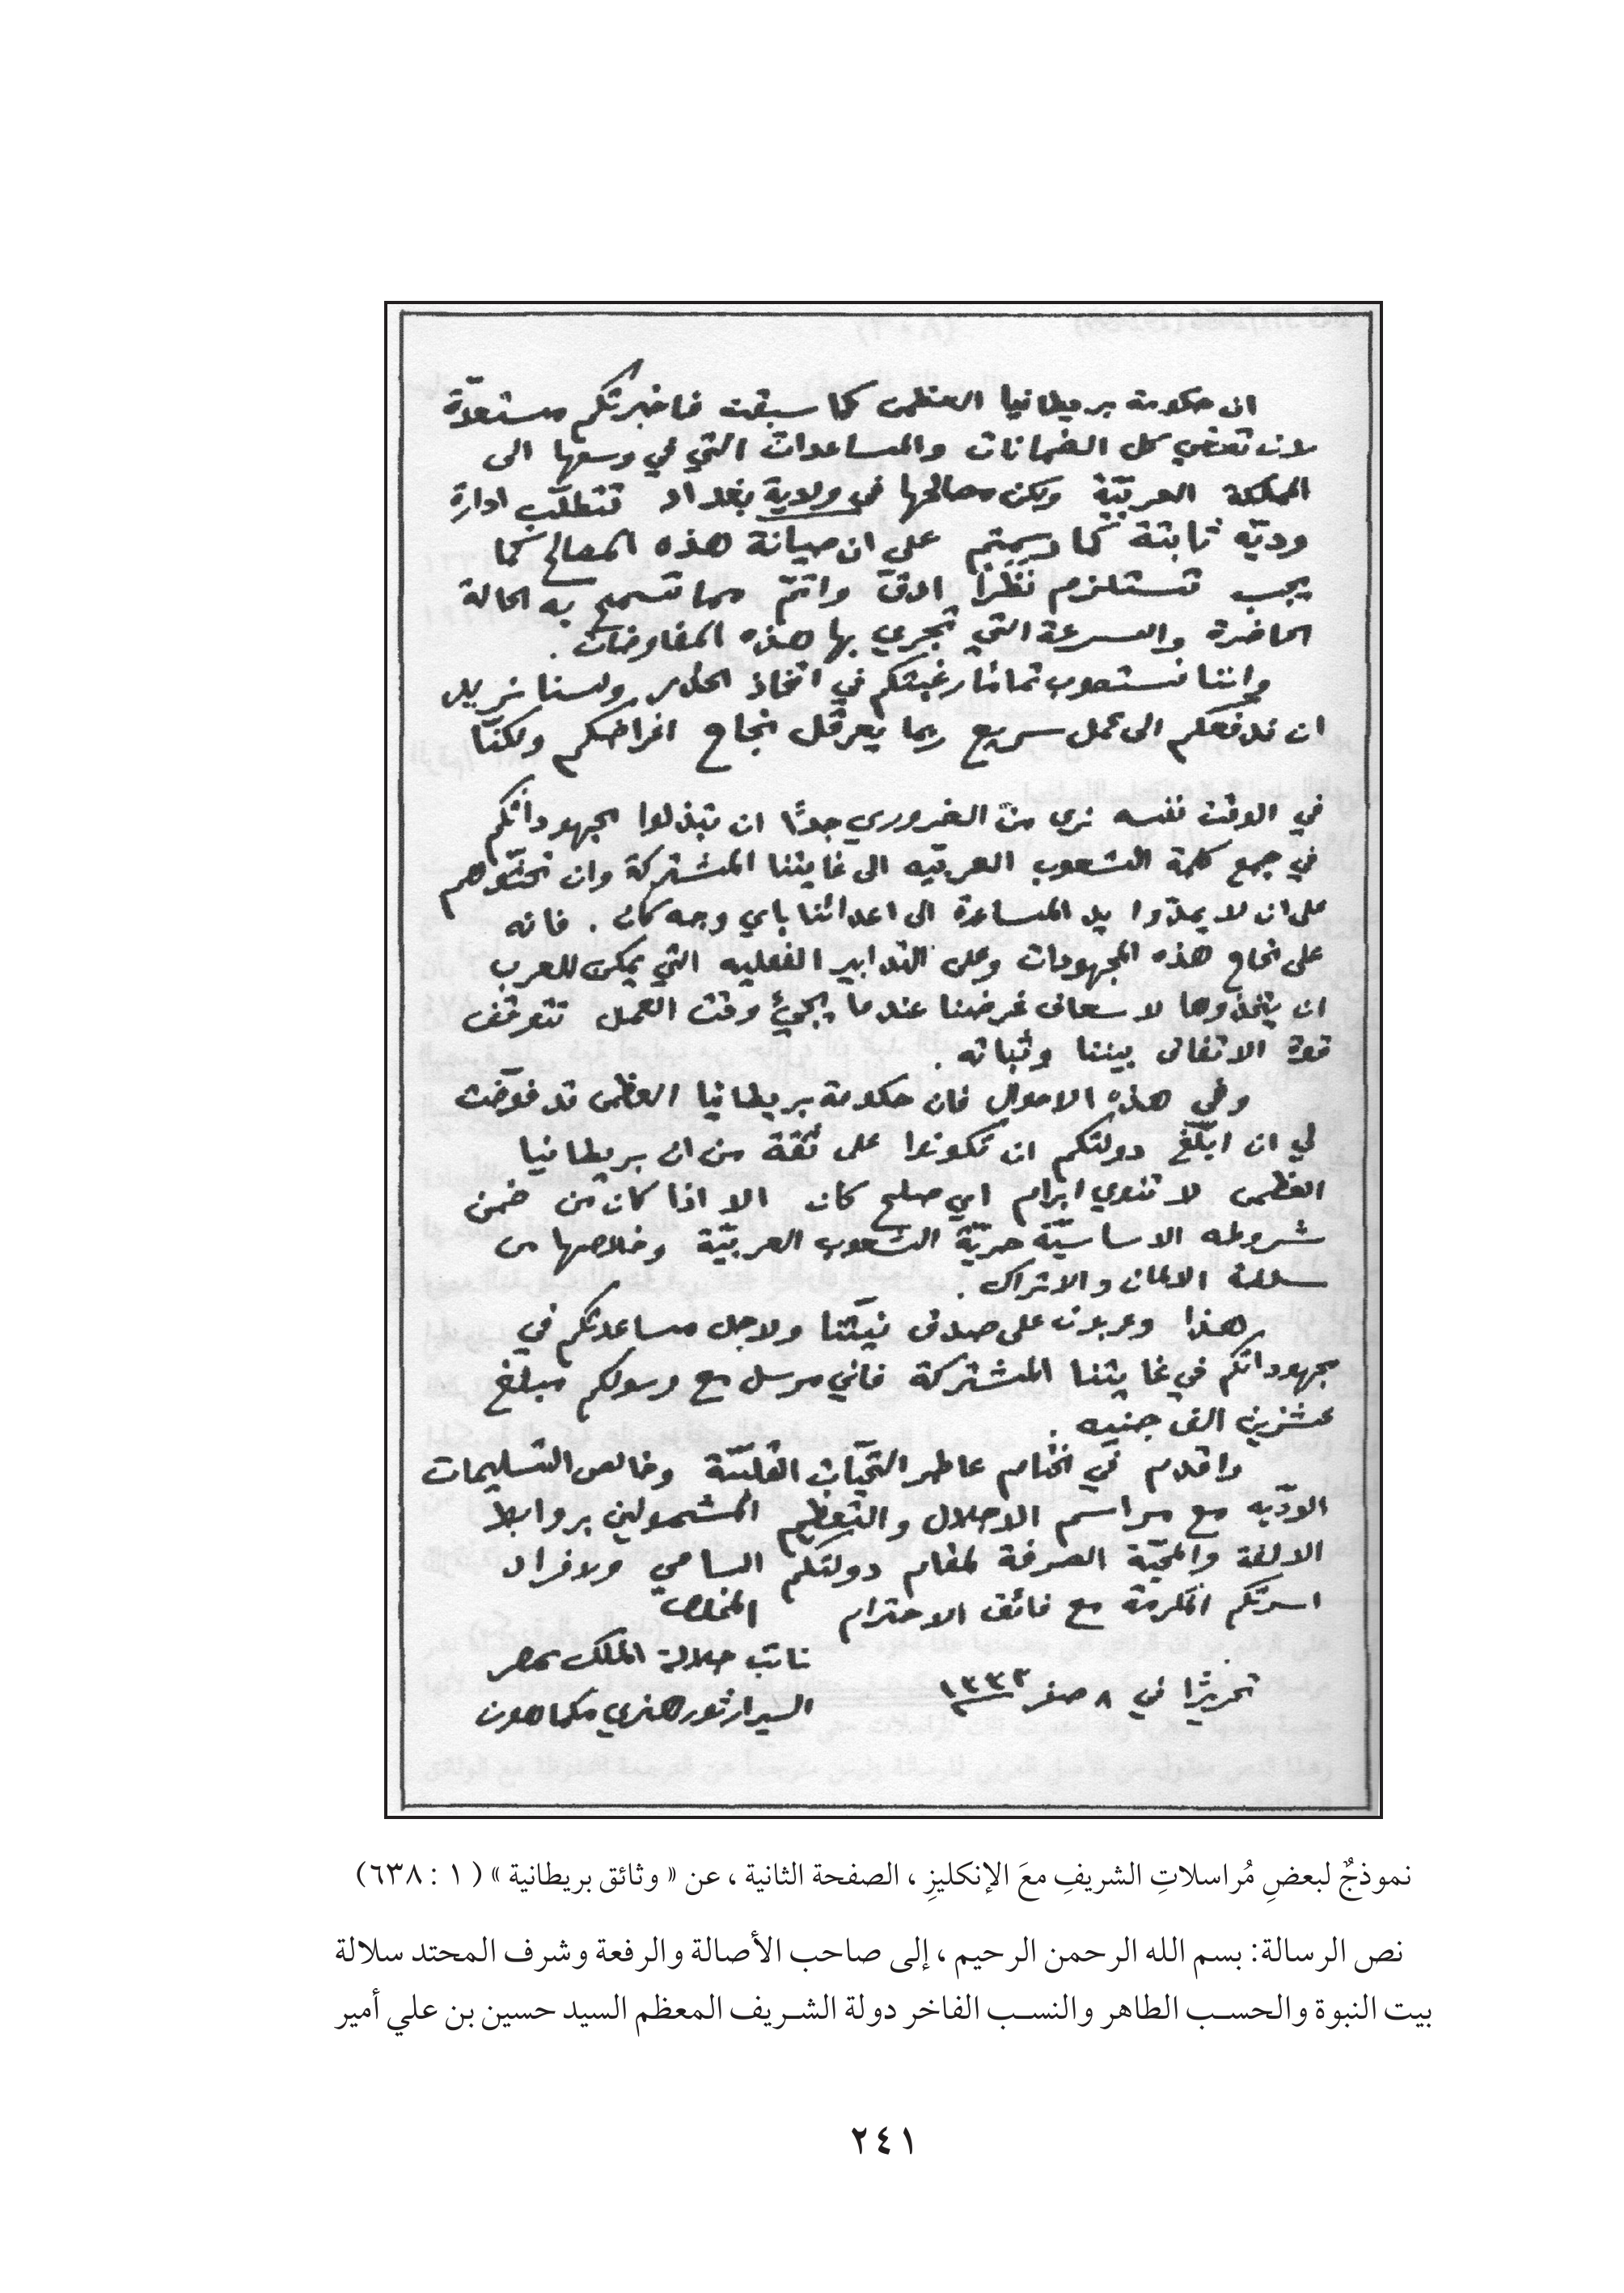 ان حكومة بريطانيا العظمى كما سبقت فاخبرتكم مستعدّة
لان تعطي كل الضمانات والمساعدات التي في وسعها الى
المملكة العربيّة ولكن مصالحها في ولاية بغداد تتطلّب ادارة
وديّه ثابتة كما رسمتم على ان صيانة هذه المصالح كما
يجب تستلزم نظرًا ادقّ واتمّ مما تسمح به الحالة
الحاضرة والسرعة التي تجري بها هذه المفاوضات .
واننا نستصوب تمامًا رغبتكم في اتخاذ الحذر ولسنا نريد
ان ندفعكم الى عمل سريع ربما يعرقل نجاح اغراضكم ولكنّا
في الوقت نفسه نرى من الضروري جدًّا ان تبذلوا مجهوداتكم
في جمع كلمة الشعوب العربيّه الى غايتنا المشتركة وان تحثّوهم
على ان لا يمدّوا يد المساعدة الى اعدائنا باي وجه كان . فانه
على نجاح هذه المجهودات وعلى التدابير الفعليه التي يمكن للعرب
ان يتخذوها لاسعاف غرضنا عندما يجيئ وقت العمل تتوقف
قوة الاتفاق بيننا وثباته .
وفي هذه الاحوال فان حكومة بريطانيا العظمى قد فوّضت
لي ان ابلّغ دولتكم ان تكونوا على ثقة من ان بريطانيا
العظمى لا تنوي ابرام اي صلح كان الا اذا كان من ضمن
شروطه الاساسيّة حريّة الشعوب العربيّة وخلاصها من
سلطة الالمان والاتراك .
هذا وعربون على صدق نيّتنا ولاجل مساعدتكم في
مجهوداتكم في غايتنا المشتركة فاني مرسل مع رسولكم مبلغ
عشرين الف جنيه .
واقدم في الختام عاطر التحيّات القلبيّة وخالص التسليمات
الودّيه مع مراسم الاجلال والتعظيم المشمولين بروابط
الالفة والمحبّة الصرفة لمقام دولتكم السامي ولافراد
اسرتكم المكرمة مع فائق الاحترام المخلص
نائب جلالة الملك بمصر
تحريرًا في ٨ صفر ١٣٣٤
السير ارثور هنري مكماهون
نموذجٌ لبعضِ مُراسلاتِ الشريفِ معَ الإنكليزِ ، الصفحة الثانية ، عن « وثائق بريطانية » ( ١ : ٦٣٨)
نص الرسالة: بسم الله الرحمن الرحيم ، إلى صاحب الأصالة والرفعة وشرف المحتد سلالة
بيت النبوة والحسب الطاهر والنسب الفاخر دولة الشريف المعظم السيد حسين بن علي أمير
٢٤١